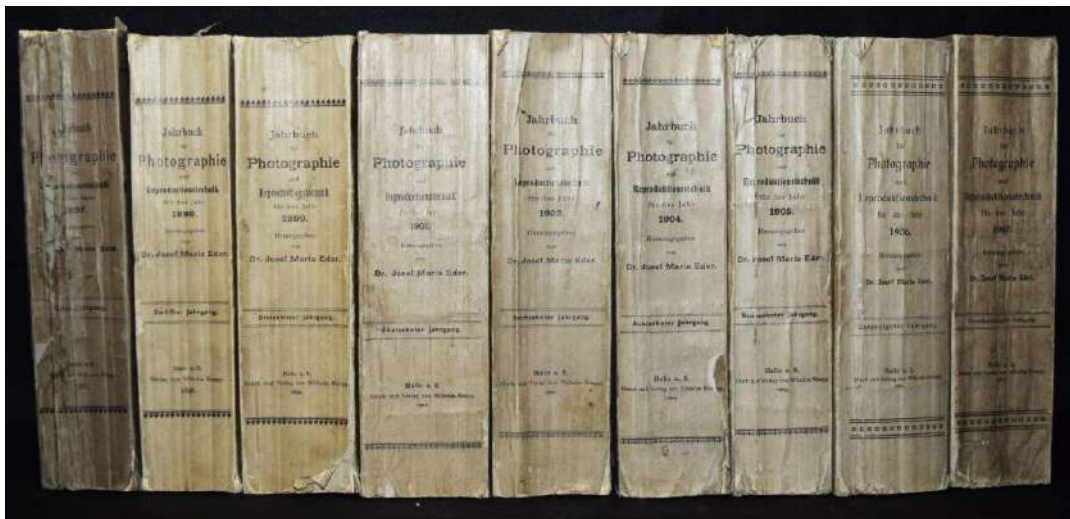 Jahrbuch
Photographie
1897.
Jahrbuch
für
Photographie
und
Reproductionstechnik
für das Jahr
1898.
Herausgegeben
von
Dr. Josef Maria Eder.
Zwölfter Jahrgang.
Halle a. S.
Verlag von Wilhelm Knapp.
1898.
Jahrbuch
für
Photographie
und
Reproductionstechnik
für das Jahr
1899.
Herausgegeben
von
Dr. Josef Maria Eder.
Dreizehnter Jahrgang.
Halle a. S.
Druck und Verlag von Wilhelm Knapp.
1899.
Jahrbuch
für
Photographie
und
Reproductionstechnik
für das Jahr
Herausgegeben
von
Dr. Josef Maria Eder.
Jahrgang.
Halle a. S.
Druck und Verlag von Wilhelm Knapp.
Jahrbuch
für
Photographie
und
Reproductionstechnik
für das Jahr
1903.
Herausgegeben
von
Dr. Josef Maria Eder.
Siebzehnter Jahrgang.
Halle a. S.
Druck und Verlag von Wilhelm Knapp.
Jahrbuch
für
Photographie
und
Reproduktionstechnik
für das Jahr
1904.
Herausgegeben
von
Dr. Josef Maria Eder.
Achtzehnter Jahrgang.
Halle a. S.
Druck und Verlag von Wilhelm Knapp.
1904.
Jahrbuch
für
Photographie
und
Reproduktionstechnik
für das Jahr
1905.
Herausgegeben
von
Dr. Josef Maria Eder.
Neunzehnter Jahrgang.
Halle a. S.
Druck und Verlag von Wilhelm Knapp.
1905.
Jahrbuch
für
Photographie
und
Reproduktionstechnik
für das Jahr
1906.
Herausgegeben
von
Dr. Josef Maria Eder.
Zwanzigster Jahrgang.
Halle a. S.
Druck und Verlag von Wilhelm Knapp.
Jahrbuch
für
Photographie
und
Reproduktionstechnik
für das Jahr
1907.
Herausgegeben
von
Dr. Josef Maria Eder.
Halle a. S.
Druck und Verlag von Wilhelm Knapp.